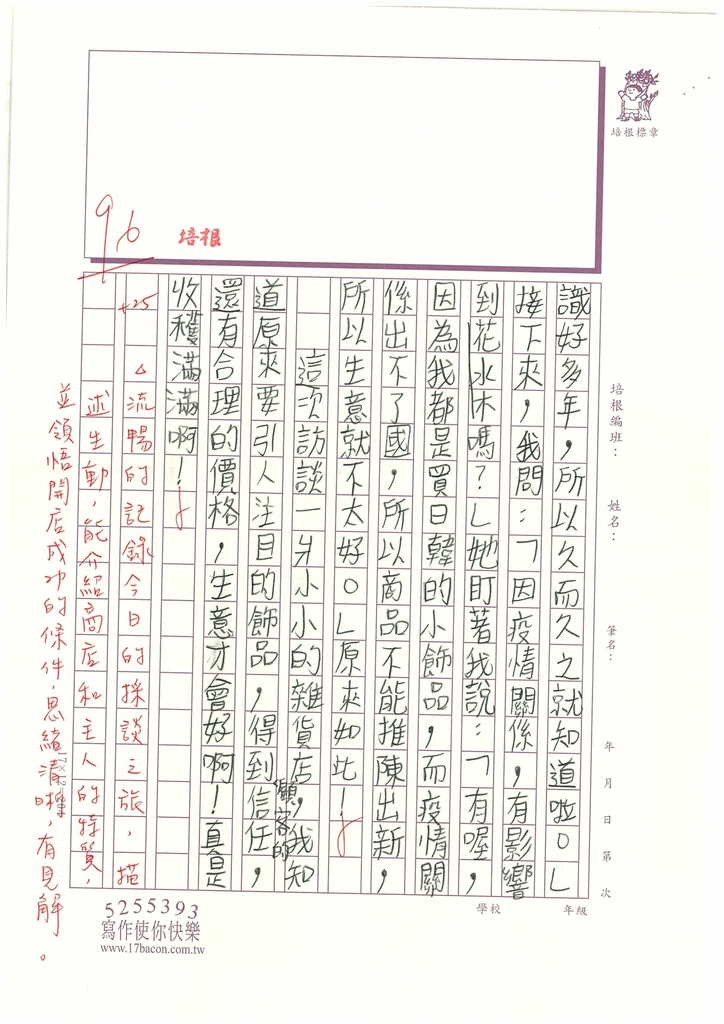 識好多年，所以久而久之就知道啦。」
接下來，我問：「因疫情關係，有影響
到花水木嗎？」她盯著我說：「有喔，
因為我都是買日韓的小飾品，而疫情關
係出不了國，所以商品不能推陳出新，
所以生意就不太好。」原來如此！
這次訪談一家小小的雜貨店，我知
道原來要引人注目的飾品，得到顧客的信任，
還有合理的價格，生意才會好啊！真是
收穫滿滿啊！
96
培根
+25
△流暢的記錄今日的採談之旅，描
述生動，能介紹商店和主人的特質，
並領悟開店成功的條件，思緒清晰，有見解。
培根標章
培根編班：
姓名：
筆名：
年 月 日 第 次
學校
年級
5255393
寫作使你快樂
www.17bacon.com.tw